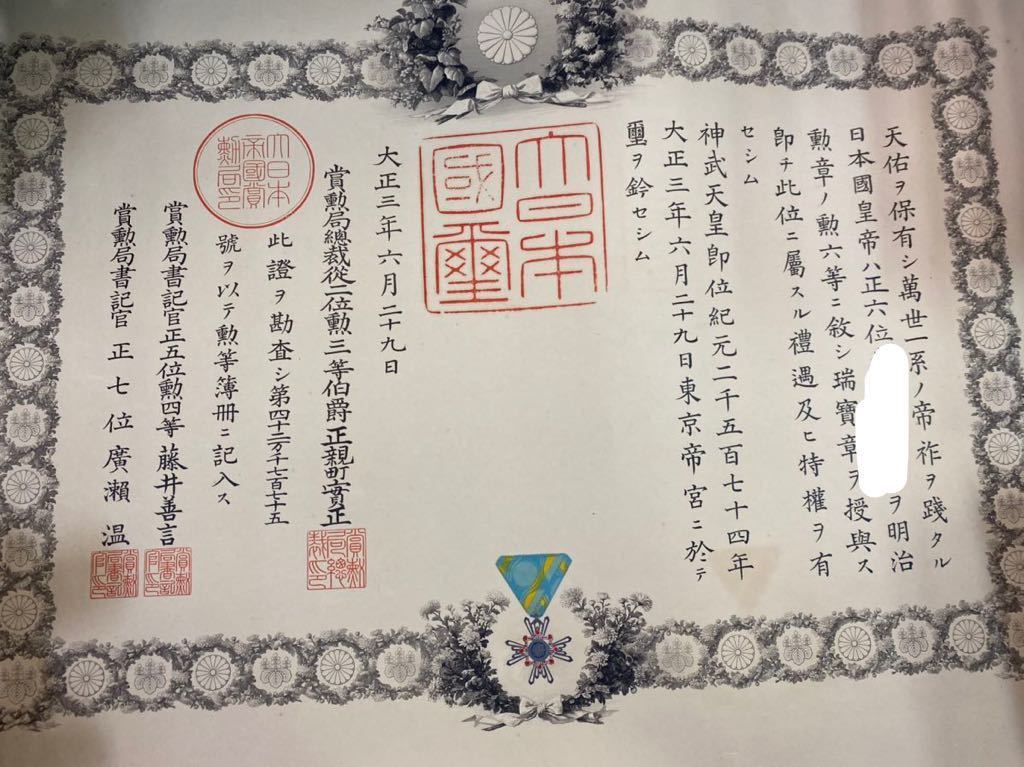 天佑ヲ保有シ萬世一系ノ帝祚ヲ踐タル
日本國皇帝ハ正六位
ヲ明治
勲章ノ勲六等ニ敘シ瑞寶章ヲ授與ス
即チ此位ニ屬スル禮遇及ヒ特權ヲ有
セシム
神武天皇即位紀元二千五百七十四年
大正三年六月二十九日東京帝宮ニ於テ
璽ヲ鈐セシム
大日本
國璽
大正三年六月二十九日
賞勲局總裁從二位勲三等伯爵正親町實正
大日本
帝國賞
勲局印
此證ヲ勘査シ第四十二万千七百七十五
號ヲ以テ勲等簿冊ニ記入ス
賞勲局書記官正五位勲四等藤井善言
賞勲局書記官正七位廣瀬温